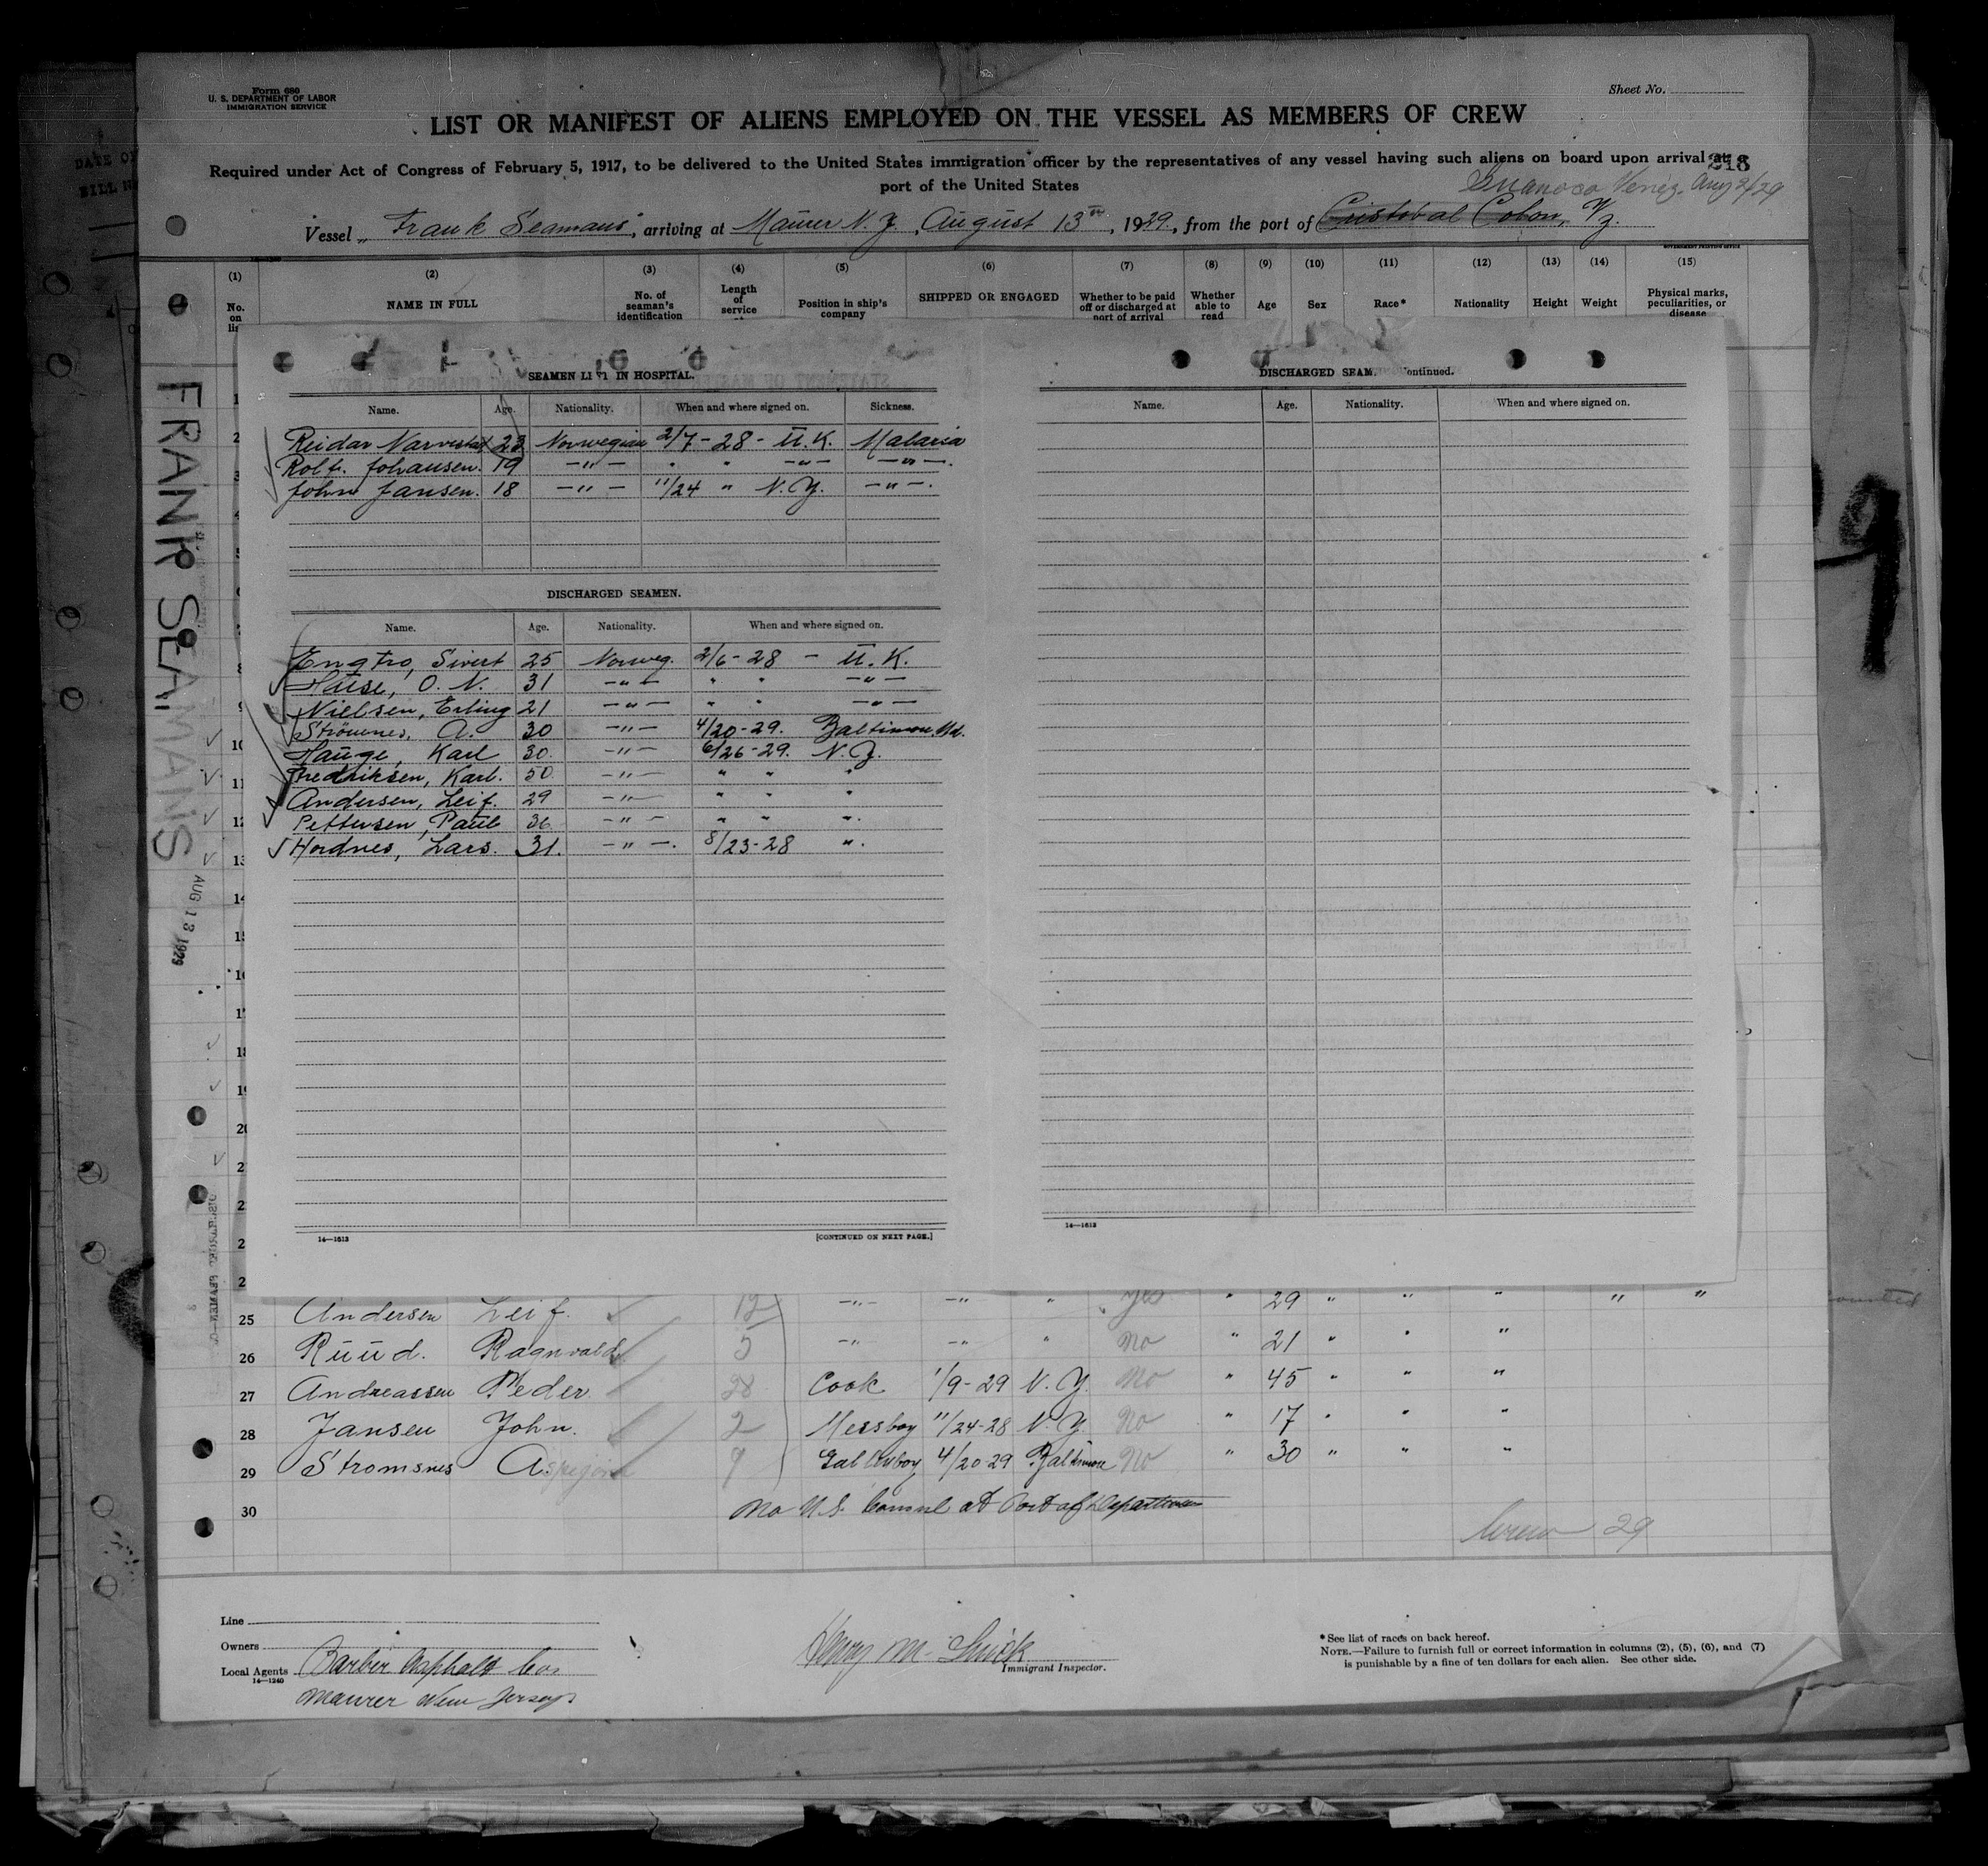 Form 680
U. S. DEPARTMENT OF LABOR
IMMIGRATION SERVICE
Sheet No.
LIST OR MANIFEST OF ALIENS EMPLOYED ON THE VESSEL AS MEMBERS OF CREW
Required under Act of Congress of February 5, 1917, to be delivered to the United States immigration officer by the representatives of any vessel having such aliens on board upon arrival at a
port of the United States
Venez. Aug 2/29
Vessel „ Frank Seamans", arriving at Maurer N. J., August 13th, 1929, from the port of Cristobal Colon, Vz.
(1) (2) (3) (4) (5) (6) (7) (8) (9) (10) (11) (12) (13) (14) (15)
No. on NAME IN FULL No. of seaman's identification Length of service Position in ship's company SHIPPED OR ENGAGED Whether to be paid off or discharged at port of arrival Whether able to read Age Sex Race* Nationality Height Weight Physical marks, peculiarities, or disease
FRANK SEAMANS
AUG 13 1929
SEAMEN IN HOSPITAL.
Name. Age. Nationality. When and where signed on. Sickness.
Reidar 23 Norwegian 2/7-28- U.K. Malaria
Rolf. Johansen. 19 —"— " " —"— —"—.
John Jansen. 18 —"— 11/24 " N.Y. —"—.
DISCHARGED SEAMEN.
Name. Age. Nationality. When and where signed on.
Engtro, Sivert 25 Norweg. 2/6-28 — U.K.
O. N. 31 —"— " " —"—
Nielsen, Erling 21 —"— " " —"—
A. 30 —"— 4/20-29. Baltimore Md.
Hauge, Karl 30. —"— 6/26-29. N.Y.
Fredriksen, Karl. 50. —"— " " "
Andersen, Leif. 29 —"— " " "
Pettersen, Paul 36 —"— " " ".
Hordnes, Lars. 31. —"—. 8/23-28 ".
14—1613
[CONTINUED ON NEXT PAGE.]
DISCHARGED Continued.
Name. Age. Nationality. When and where signed on.
14—1613
25 Andersen Leif. 12 —"— —"— " Yes " 29 " " " " "
26 Ruud. Ragnvald 5 —"— —"— " No " 21 " " "
27 Andreassen Peder 28 Cook 1/9-29 N.Y. No " 45 " " "
28 Jansen John. 2 Messboy 11/24-28 N.Y. No " 17 " " "
29 Stromsnes 9 4/20-29 Baltimore No " 30 " " "
30 No U.S. Consul at Port of Departure
Crew 29
Line
Owners
Local Agents Barber Asphalt Co.
14—1240
Maurer New Jersey
Immigrant Inspector.
*See list of races on back hereof.
NOTE.—Failure to furnish full or correct information in columns (2), (5), (6), and (7)
is punishable by a fine of ten dollars for each alien. See other side.